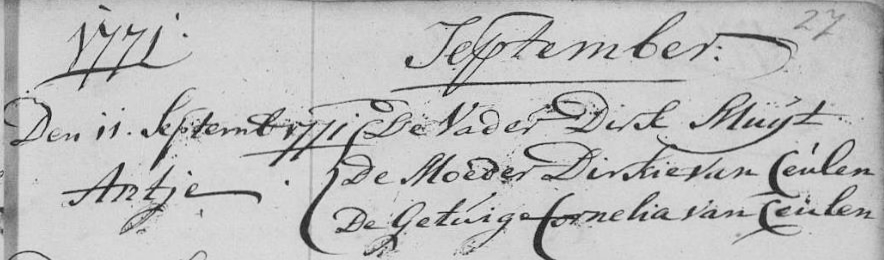 1771. September: 27
Den 11. Septemb 1771 De Vader Dirk Muijt
Antje. De Moeder Dirkie van Ceulen
De Getuige Cornelia van Ceulen